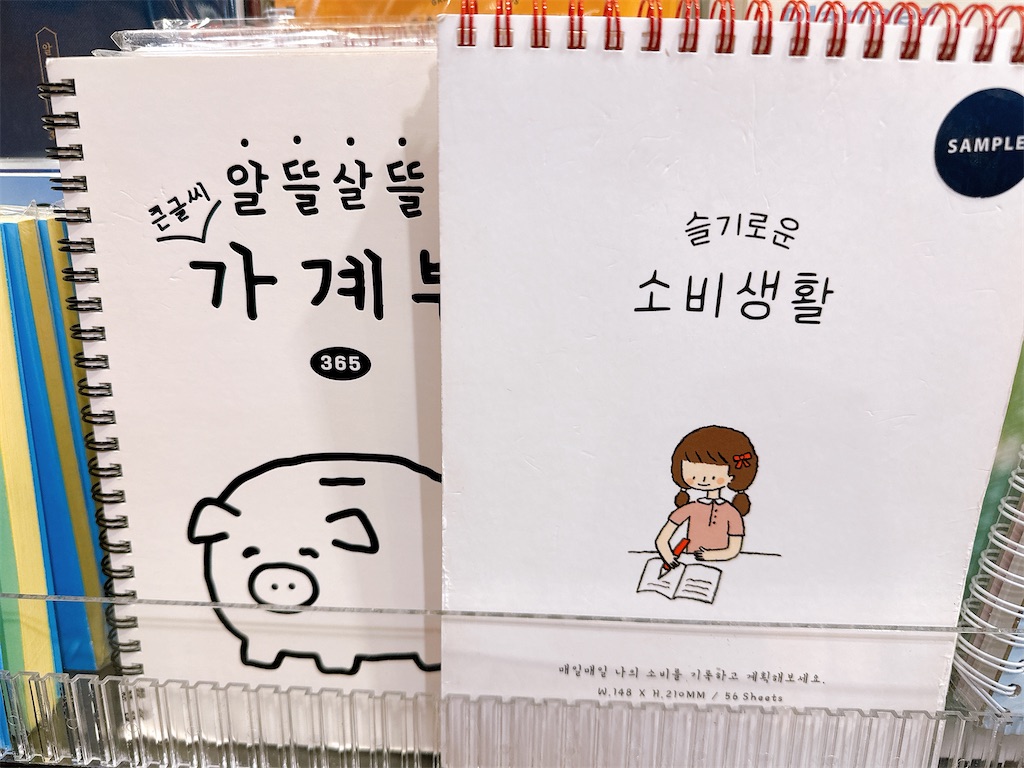 알뜰살뜰
큰글씨
가계부
365
SAMPLE
슬기로운
소비생활
매일매일 나의 소비를 기록하고 계획해보세요.
W.148 X H.210MM / 56 Sheets